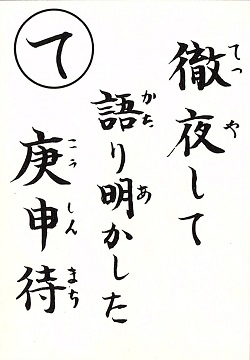 て
徹夜して
語り明かした
庚申待
てつや
かたあ
こうしんまち